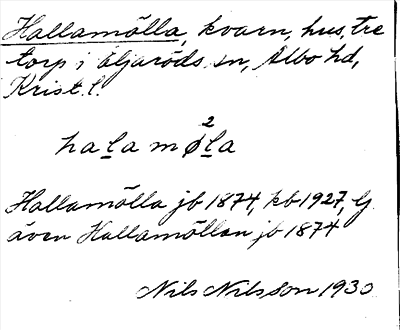 Hallamölla, kvarn, hus, tre
torp i Eljaröds sn, Albo hd,
Krist. l.
halamø²la
Hallamölla jb 1874, kb 1927, lj
även Hallamöllan jb 1874
Nils Nilsson 1930